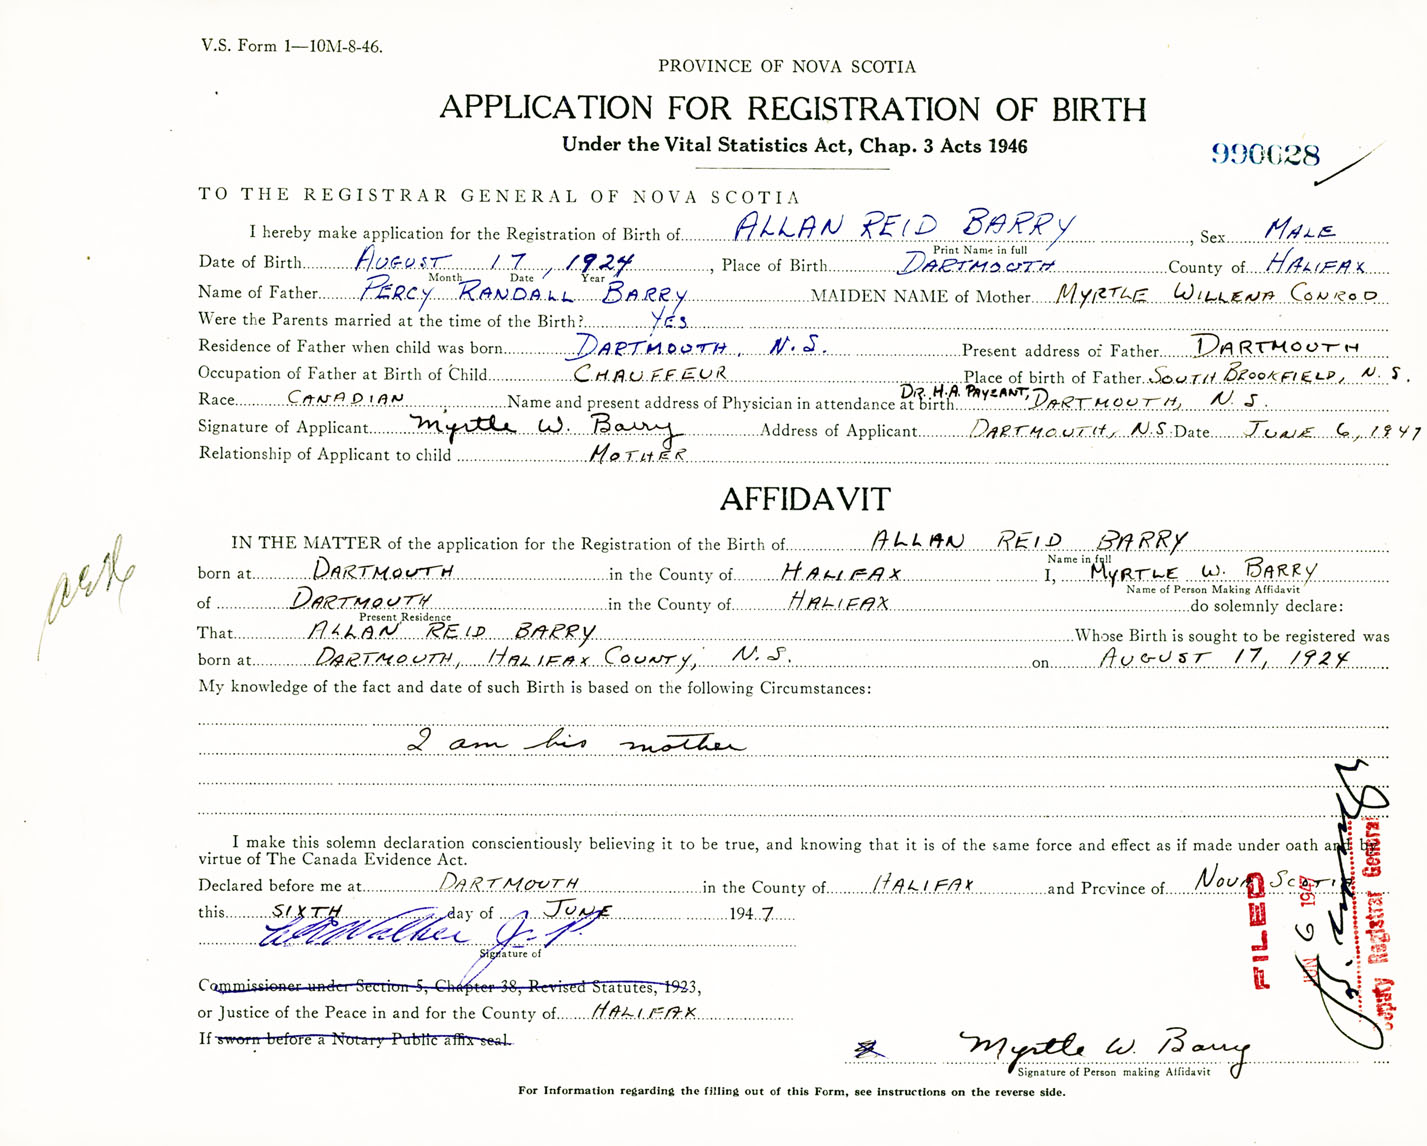 V.S. Form 1—10M-8-46.
PROVINCE OF NOVA SCOTIA
APPLICATION FOR REGISTRATION OF BIRTH
Under the Vital Statistics Act, Chap. 3 Acts 1946
990628
TO THE REGISTRAR GENERAL OF NOVA SCOTIA
I hereby make application for the Registration of Birth of ALLAN REID BARRY, Sex MALE
Print Name in full
Date of Birth AUGUST 17, 1924, Place of Birth DARTMOUTH County of HALIFAX
Month Date Year
Name of Father PERCY RANDALL BARRY MAIDEN NAME of Mother MYRTLE WILLENA CONROD
Were the Parents married at the time of the Birth? YES
Residence of Father when child was born DARTMOUTH, N.S. Present address of Father DARTMOUTH
Occupation of Father at Birth of Child CHAUFFEUR Place of birth of Father SOUTH BROOKFIELD, N.S.
Race CANADIAN Name and present address of Physician in attendance at birth DR. H.A. PAYZANT, DARTMOUTH, N.S.
Signature of Applicant Myrtle W. Barry Address of Applicant DARTMOUTH, N.S. Date JUNE 6, 1947
Relationship of Applicant to child MOTHER
AFFIDAVIT
IN THE MATTER of the application for the Registration of the Birth of ALLAN REID BARRY
Name in full
born at DARTMOUTH in the County of HALIFAX I, MYRTLE W. BARRY
Name of Person Making Affidavit
of DARTMOUTH in the County of HALIFAX do solemnly declare:
Present Residence
That ALLAN REID BARRY Whose Birth is sought to be registered was
born at DARTMOUTH, HALIFAX COUNTY, N.S. on AUGUST 17, 1924
My knowledge of the fact and date of such Birth is based on the following Circumstances:
I am his mother
I make this solemn declaration conscientiously believing it to be true, and knowing that it is of the same force and effect as if made under oath and by
virtue of The Canada Evidence Act.
Declared before me at DARTMOUTH in the County of HALIFAX and Province of NOVA SCOTIA
this SIXTH day of JUNE 1947
Walker J.P.
Signature of
Commissioner under Section 5, Chapter 38, Revised Statutes, 1923,
or Justice of the Peace in and for the County of HALIFAX
If sworn before a Notary Public affix seal.
Myrtle W. Barry
Signature of Person making Affidavit
For Information regarding the filling out of this Form, see instructions on the reverse side.
FILED
JUN 6 1947
Deputy Registrar General